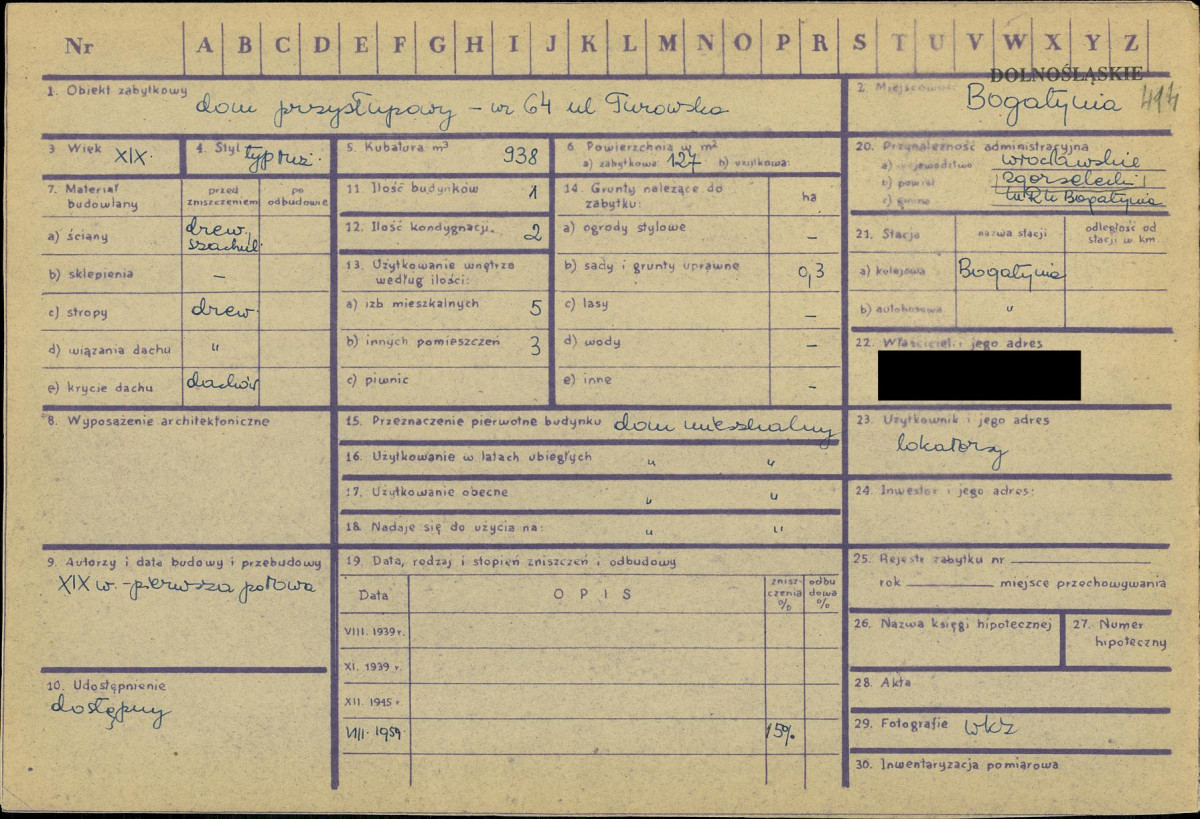 Nr A B C D E F G H I J K L M N O P R S T U V W X Y Z
DOLNOŚLĄSKIE
1. Obiekt zabytkowy
dom przysłupowy – nr 64 ul Turowska
2. Miejscowość
Bogatynia 414
3 Wiek XIX.
4. Styl
5. Kubatura m³ 938
6 Powierzchnia w m²
a) zabytkowa: 127 b) użytkowa:
7. Materiał budowlany
przed zniszczeniem
po odbudowie
a) ściany
drew.
szachul.
b) sklepienia –
c) stropy drew.
d) wiązania dachu "
e) krycie dachu dachów
8. Wyposażenie architektoniczne
9. Autorzy i data budowy i przebudowy
XIX w. – pierwsza połowa
10. Udostępnienie
dostępny
11. Ilość budynków 1
12. Ilość kondygnacji. 2
13. Użytkowanie wnętrza
według ilości:
a) izb mieszkalnych 5
b) innych pomieszczeń 3
c) piwnic
14. Grunty należące do
zabytku: ha
a) ogrody stylowe –
b) sady i grunty uprawne 0,3
c) lasy –
d) wody –
e) inne –
15. Przeznaczenie pierwotne budynku dom mieszkalny
16. Użytkowanie w latach ubiegłych " "
17. Użytkowanie obecne " "
18. Nadaje się do użycia na: " "
19. Data, rodzaj i stopień zniszczeń i odbudowy
Data
OPIS
zniszczenia %
odbudowa %
VIII. 1939 r.
XI. 1939 r.
XII. 1945 r.
VIII. 1959 15%
20. Przynależność administracyjna
a) województwo wrocławskie
b) powiat zgorzelecki
c) gmina Bogatynia
21. Stacja
nazwa stacji
odległość od
stacji w km
a) kolejowa Bogatynia
b) autobusowa "
22. Właściciel i jego adres
23. Użytkownik i jego adres
lokatorzy
24. Inwestor i jego adres:
25. Rejestr zabytku nr
rok miejsce przechowywania
26. Nazwa księgi hipotecznej
27. Numer
hipoteczny
28. Akta
29. Fotografie WKZ
30. Inwentaryzacja pomiarowa